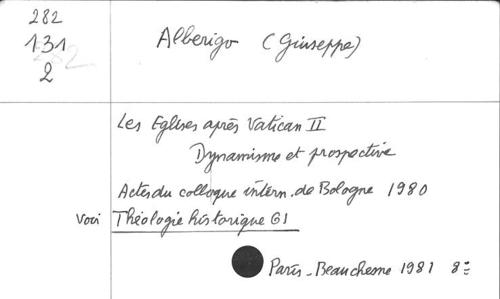 282
131
2
Alberigo (Giuseppe)
Les Eglises après Vatican II
Dynamisme et prospective
Actes du colloque intern. de Bologne 1980
Voir Théologie historique 61
Paris - Beauchesne 1981 8°